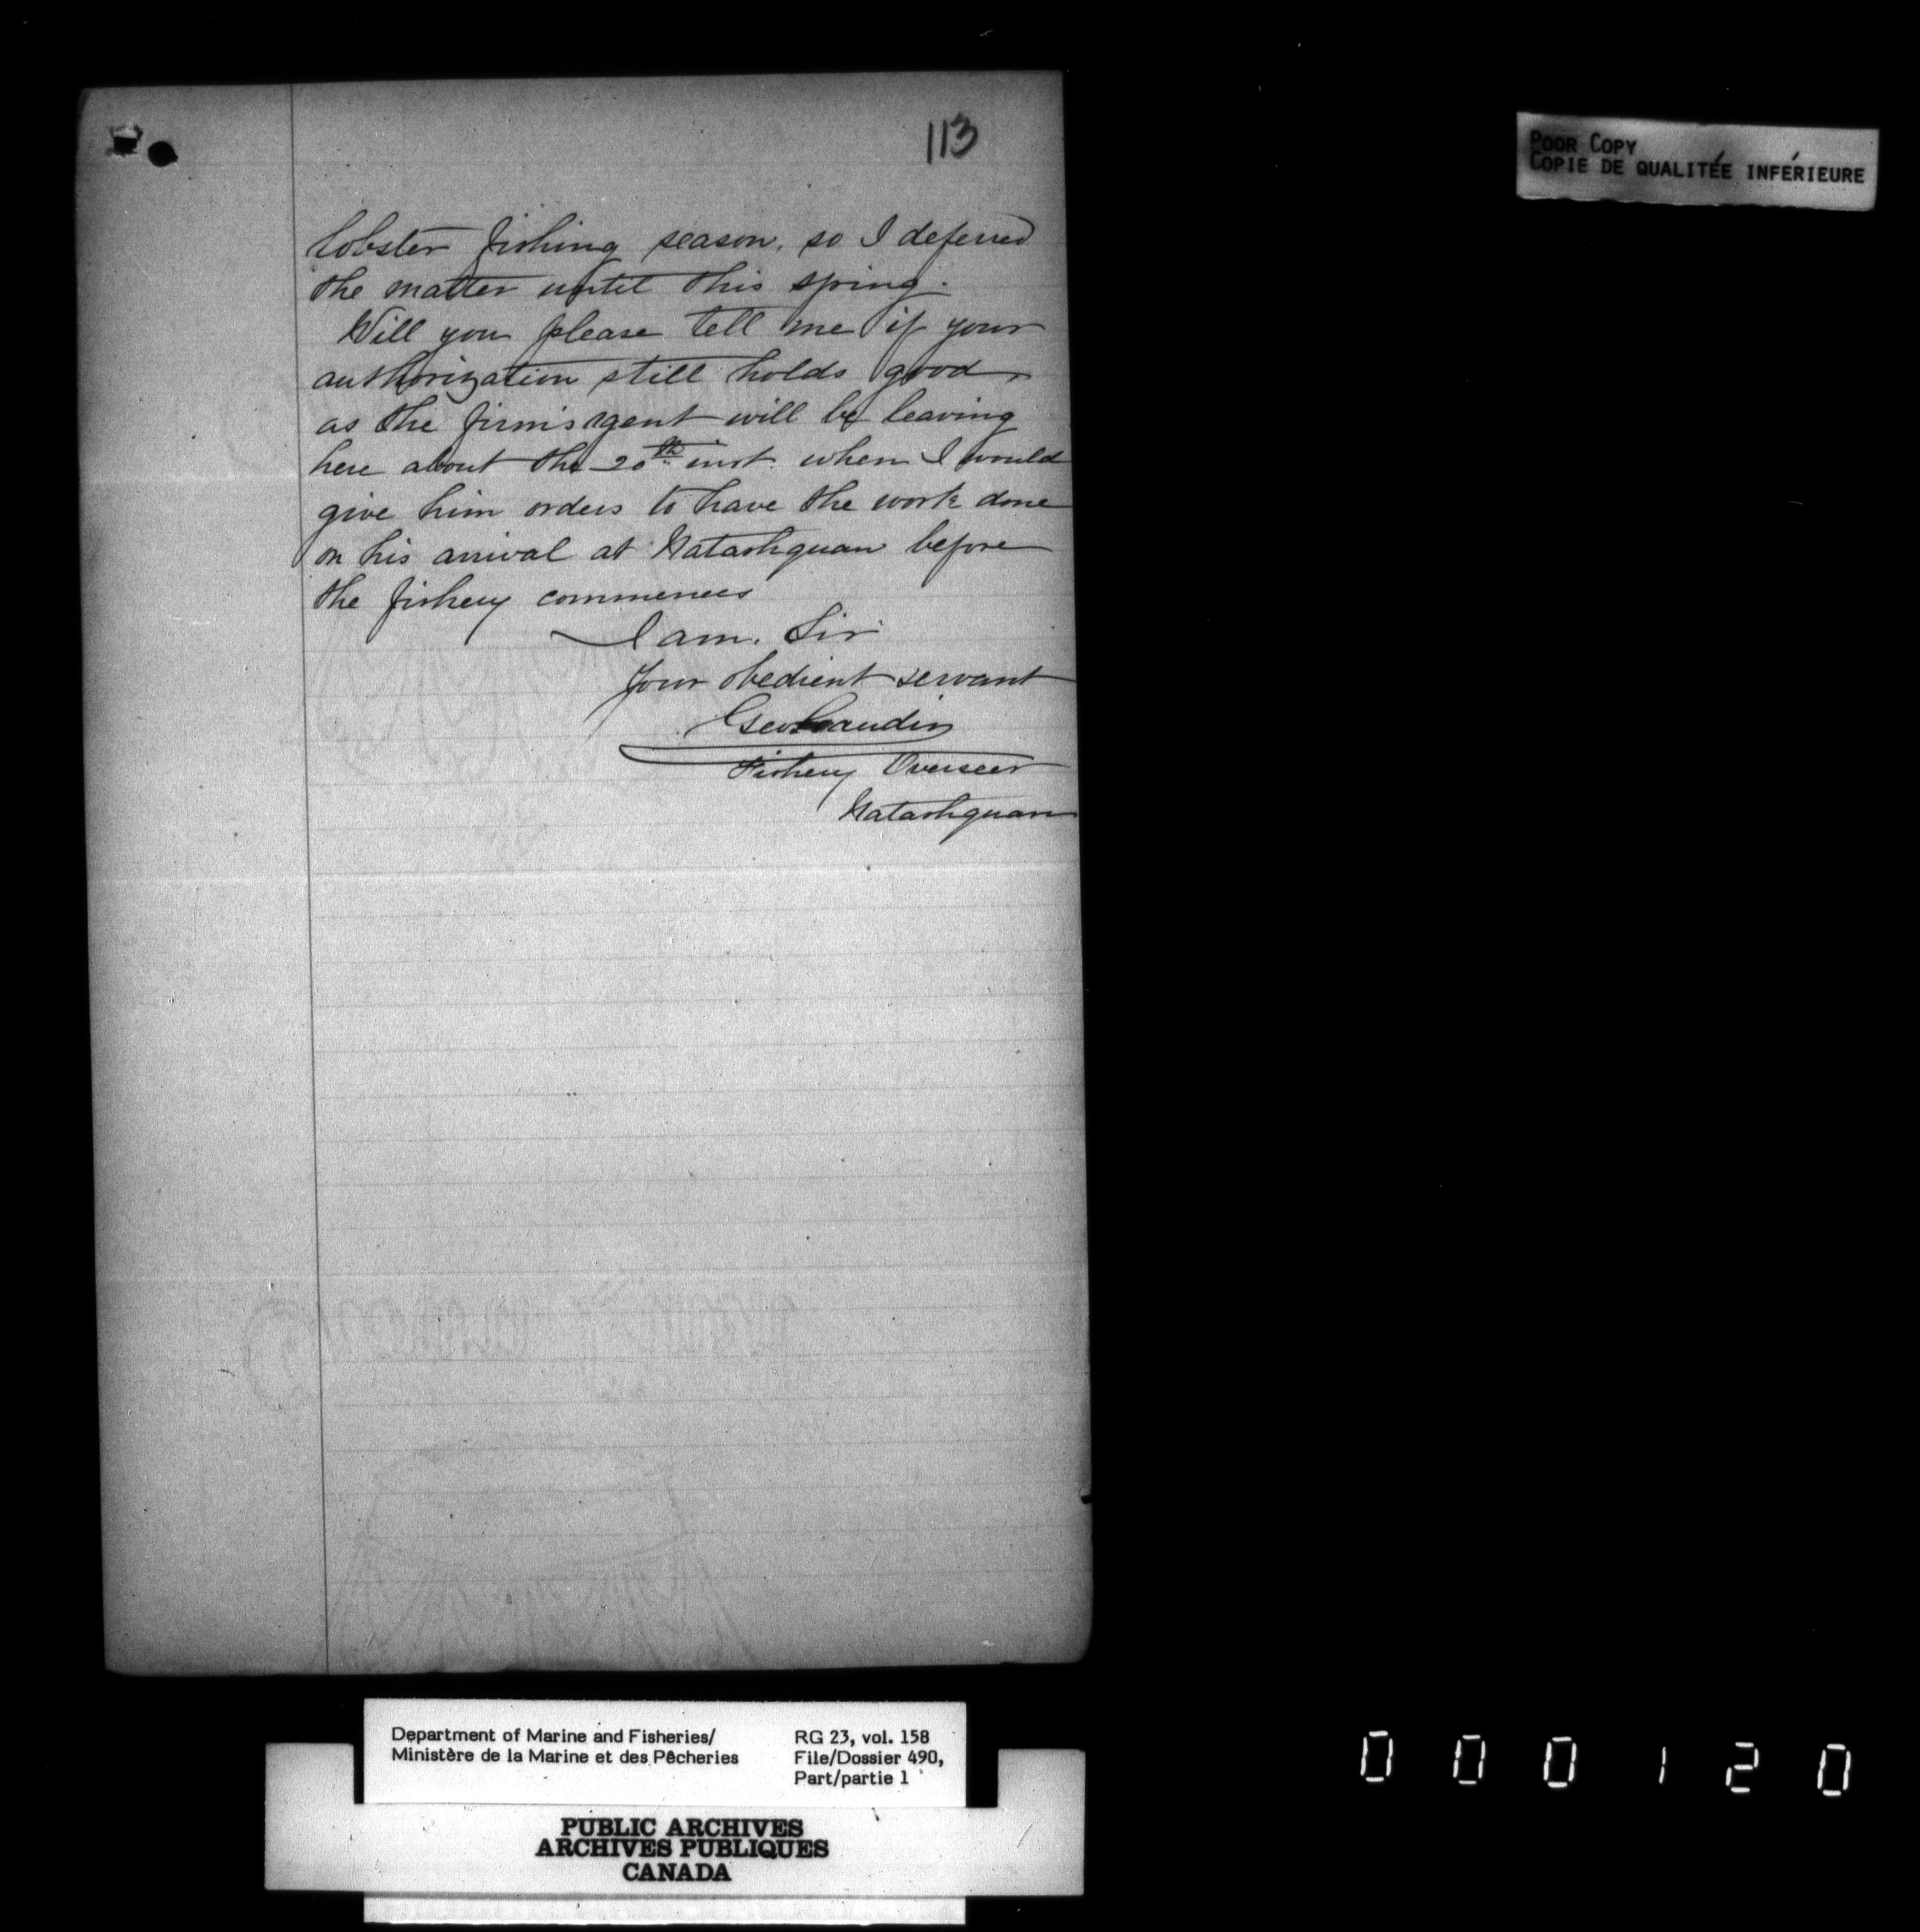 113
POOR COPY
COPIE DE QUALITÉE INFÉRIEURE
lobster fishing season, so I deferred
the matter until this spring.
Will you please tell me if your
authorization still holds good,
as the firm's agent will be leaving
here about the 20th inst. when I would
give him orders to have the work done
on his arrival at Natashquan before
the fishery commences
I am. Sir
Your obedient servant
Geo Gaudin
Fishery Overseer
Natashquan
Department of Marine and Fisheries/
Ministère de la Marine et des Pêcheries
RG 23, vol. 158
File/Dossier 490,
Part/partie 1
PUBLIC ARCHIVES
ARCHIVES PUBLIQUES
CANADA
000120